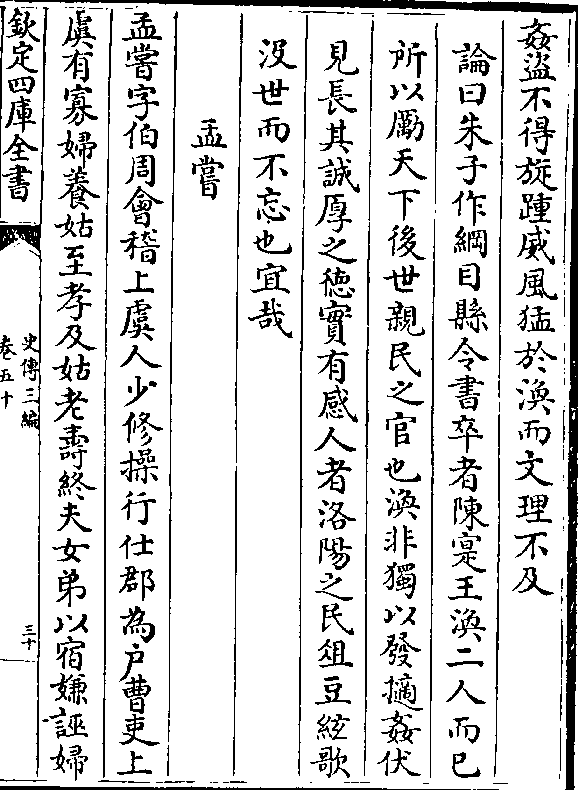 姦盜不得旋踵威風猛於渙而文理不及
論曰朱子作綱目縣令書卒者陳寔王渙二人而已
所以厲天下後世親民之官也渙非獨以發擿姦伏
見長其誠厚之德實有感人者洛陽之民俎豆絃歌
沒世而不忘也宜哉
孟嘗
孟嘗字伯周會稽上虞人少修操行仕郡為户曹吏上
虞有寡婦養姑至孝及姑老壽終夫女弟以宿嫌誣婦
欽定四庫全書
史傳三編
卷五十
三十